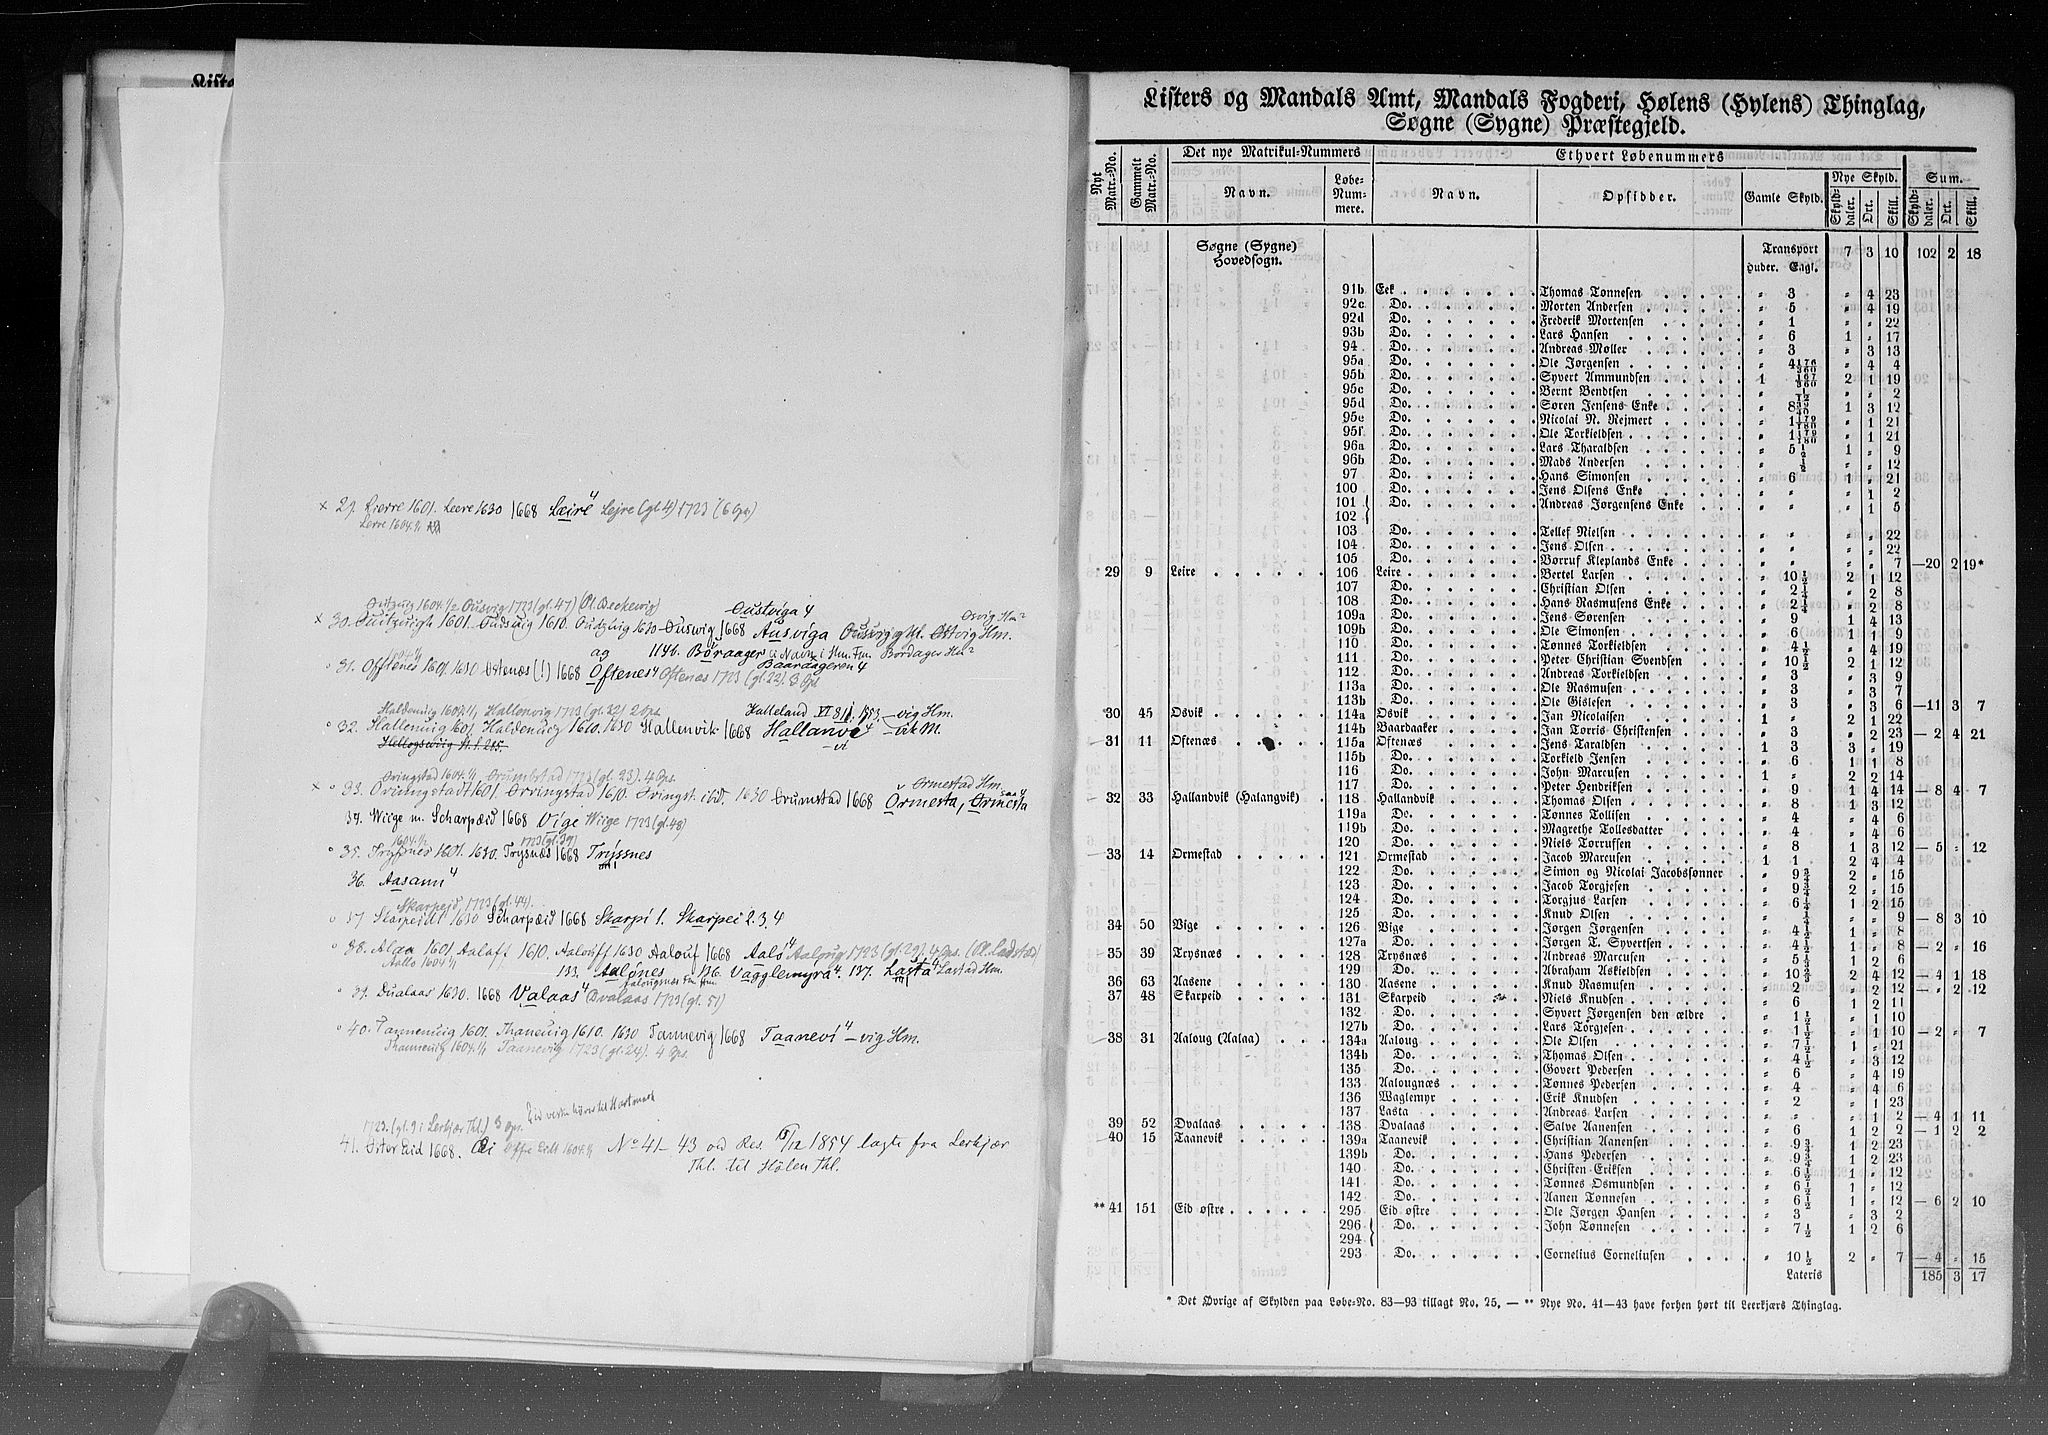 Liste
× 29. Lierre 1601. Leere 1630 1668 Læire⁴ Lejre (gl 4) 1723 (6 Gr)
Lerre 1604 1/1
Outzuig 1604 1/2 Ousvig 1723 (gl. 47) (Pl. Beckevig) Oustviga 4 Osvig Hm²
× 30. Outzuigh 1601. Oudsuig 1610. Outzuig 1630 Ouswig 1668 Ausviga Ousvig gl. Ostvig Hm.
og 114b. Boraager i Navn i Hm. Fm. Bordager Hm²
1604 1/1 Baardageren 4
° 31. Offtenes 1601. 1630 Ostenæs (!) 1668 Oftenes⁴ Oftenæs 1723 (gl. 22). 3 Gr
Haldenuig 1604 1/1, Hallenvig 1723 (gl. 32) 2 Gr. Halleland VI 811. 1553. –vig Hm.
° 32. Hallenuig 1601. Haldenuig 1610. 1630 Hallenvik 1668 Hallanve⁴ –vik M.
vi
Hellogswiig St. f. 215.
Oringstad 1604 1/1 Orumbstad 1723 (gl. 23). 4 Gr. Ormestad Hm.
× ° 33. Oruengstadt 1601. Orvingstad 1610. Oringst. ibd. 1630 Orumstad 1668 Ormesta, Ormesta
34. Wiige m. Scharpæid 1668 Vige Wiige 1723 (gl. 48)
1604 1/1 1723 (gl. 39)
° 35. Trysnes 1601. 1630. Trysnæs 1668 Tryssnes
36. Aasann⁴
Skarpejd 1723 (gl. 44).
° 37 Skarpeidt 1630 Scharpæid 1668 Skarpi 1. Skarpei 2.3.4
° 38. Alaa 1601. Aalaff 1610. Aalouff 1630 Aalouf 1668 Aalo⁴ Aaloug 1723 (gl. 29). 4 Gr. (Pl. Ladstad)
Aallo 1604 1/1 133. Aalónes 136. Vagglemyra⁴. 137. Lasta⁴ Lastad Hm.
Aalougnes Fm Hm.
° 39. Dualaas 1630. 1668 Valaas⁴ Dvalaas 1723 (gl. 51)
° 40. Tannenuig 1601. Thaneuig 1610. 1630 Tannevig 1668 Taanevi⁴ –vig Hm.
Thanneuig 1604 1/1 Taanevig 1723 (gl. 24). 4 Gr.
1723. (gl. 9 i Lerkjær Thl.) 3 Gr. Eid vestre hører til Hartmark
41. Øster Eid 1668. Æi Offre Eidt 1604 1/1 No 41–43 ved Res. 1854 lagte fra Lerkjær
Thl. til Hölen Thl.
Listers og Mandals Amt, Mandals Fogderi, Hølens (Hylens) Thinglag,
Søgne (Sygne) Præstegjeld.
Nyt Matr.-No. Gammelt Matr.-No. Det nye Matrikul-Nummers Ethvert Løbenummers
Navn. Løbe-Nummere. Navn. Opsidder. Gamle Skyld. Nye Skyld. Sum.
Skylddaler. Ort. Skill. Skylddaler. Ort. Skill.
Søgne (Sygne) Hovedsogn. Transport 7 3 10 102 2 18
Huder. Engl.
91b Eek Thomas Tønnesen " 3 " 4 23
92c Do. Morten Andersen " 5 " 4 19
92d Do. Frederik Mortensen " 1 " " 22
93b Do. Lars Hansen " 6 1 " 17
94 Do. Andreas Møller " 3 " 3 13
95a Do. Ole Jørgensen " 4 176/360 " 4 4
95b Do. Syvert Ammundsen 1 167/360 2 1 19
95c Do. Bernt Bendtsen " 1/12 " " 2
95d Do. Søren Jensens Enke " 8 1 3 12
95e Do. Nicolai N. Rejmert " 1 179/180 " 1 21
95f Do. Ole Torkieldsen " 1 179/180 " 1 21
96a Do. Lars Tharaldsen " 5 1/2 1 " 9
96b Do. Mads Andersen " 1/2 " " 12
97 Do. Hans Simonsen " 6 1 " 21
100 Do. Jens Olsens Enke " " " 1 2
101 Do. Andreas Jørgensens Enke " " " 1 5
102
103 Do. Tellef Nielsen " " " " 22
104 Do. Jens Olsen " " " " 22
105 Do. Børruf Kleplands Enke " " " " 7 —20 2 19*
29 9 Leire 106 Leire Bertel Larsen " 10 1/2 2 1 12
107 Do. Christian Olsen " 2 1/4 " 2 8
108 Do. Hans Rasmusens Enke " 2 1/4 " 2 8
109a Do. Jens Sørensen " 9 1 4 13
109b Do. Ole Simonsen " 6 1 1 9
110 Do. Tønnes Torkieldsen " 4 1/2 " 4 19
111 Do. Peter Christian Svendsen " 10 1/2 2 1 12
112 Do. Andreas Torkieldsen " 3 " 3 9
113a Do. Ole Rasmusen " 3 " 3 7
113b Do. Ole Gislesen " 3 " 3 6 —11 3 7
30 45 Osvik 114a Osvik Jan Nicolaisen 1 " 2 1 22
114b Baardaaker Jan Torris Christensen " 3 " 2 23 — 2 4 21
31 11 Oftenæs 115a Oftenæs Jens Taraldsen 1 3 3 " 19
115b Do. Torkield Jensen " 6 1 1 8
116 Do. John Marcusen 1 " 2 2 14
117 Do. Peter Hendriksen " 9 1 4 14 — 8 4 7
32 33 Hallandvik (Halangvik) 118 Hallandvik Thomas Olsen " 8 1 3 12
119a Do. Tønnes Tollisen " 4 " 4 6
119b Do. Magrethe Tollesdatter " 4 " 4 6
120 Do. Niels Torruffsen " 8 1 3 12 — 5 " 12
33 14 Ormestad 121 Ormestad Jacob Marcusen 1 1 2 4 4
122 Do. Simon og Nicolai Jacobssønner " 9 3/4 2 " 15
123 Do. Jacob Torgjesen " 9 3/4 2 " 15
124 Do. Torgjus Larsen " 6 1/4 1 2 15
125 Do. Knud Olsen " 1/4 " " 9 — 8 3 10
34 50 Vige 126 Vige Jørgen Jørgensen " 4 1/2 1 " 8
127a Do. Jørgen T. Syvertsen " 4 1/2 1 " 8 — 2 " 16
35 39 Trysnæs 128 Trysnæs Andreas Marcusen " 5 1/3 1 2 6
129 Do. Abraham Askieldsen " 10 2/3 2 4 12 — 4 1 18
36 63 Aasene 130 Aasene Knud Rasmusen " 2 " 2 12 — " 2 12
37 48 Skarpeid 131 Skarpeid Niels Knudsen " 6 1 2 11
132 Do. Syvert Jørgensen den ældre " 1 1/2 " 1 10
127b Do. Lars Torgjesen " 1 1/2 " 1 10 — 2 " 7
38 31 Aaloug (Aalaa) 134a Aaloug Ole Olsen " 7 1/2 1 " 21
134b Do. Thomas Olsen " 4 1/2 " 3 12
135 Do. Govert Pedersen " 6 " 4 19
133 Aalougnæs Tønnes Pedersen " 4 " 4 6
136 Waglemyr Erik Knudsen " 2 " 1 23
137 Lasta Andreas Larsen " " " 1 2 — 4 1 11
39 52 Dvalaas 138 Dvalaas Salve Aanensen " 6 1 2 2 — 1 2 2
40 15 Taanevik 139a Taanevik Christian Aanensen " 9 3/4 1 2 23
139b Do. Hans Pedersen " 9 3/4 1 2 23
140 Do. Christen Eriksen " 6 1/2 1 " 12
141 Do. Tønnes Osmundsen " 6 1/2 1 " 12
142 Do. Aanen Tønnesen " 6 1/2 1 " 12 — 6 2 10
** 41 151 Eid østre 295 Eid østre Ole Jørgen Hansen " 3 " 3 2
296 Do. John Tønnesen " 7 1/2 1 2 6
294
293 Do. Cornelius Corneliusen " 10 1/2 2 " 7 — 4 " 15
Lateris 185 3 17
* Det Øvrige af Skylden paa Løbe-No. 83—93 tillagt No. 25. — ** Nye No. 41—43 have forhen hørt til Leerkjærs Thinglag.